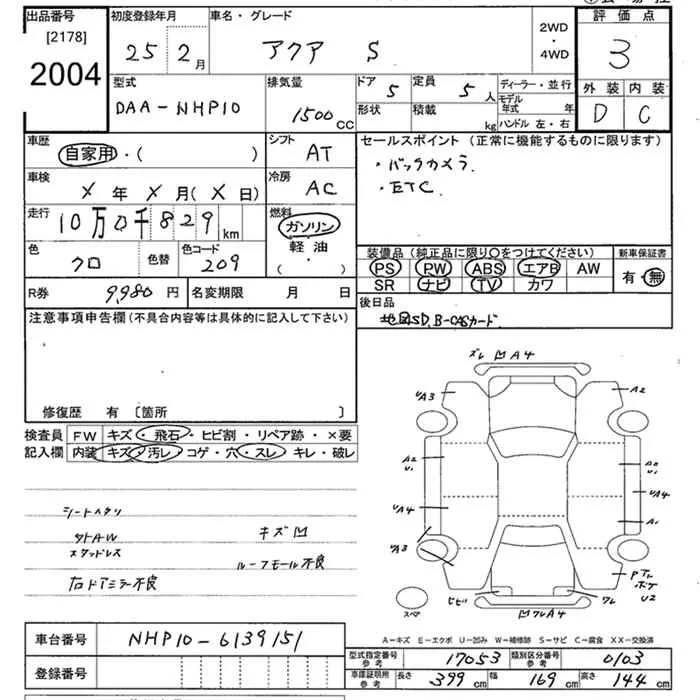 出品番号 初度登録年月 車名・グレード 2WD・4WD 評価点
[2178]
2004 25 2月 アクア S 3
型式 排気量 ドア 5 定員 5人 ディーラー・並行 外装 内装
DAA-NHP10 1500CC 形状 積載 kg モデル年式 年 D C
ハンドル 左・右
車歴 シフト セールスポイント (正常に機能するものに限ります)
自家用・( ) AT ・バックカメラ.
車検 冷房 ・ETC.
X年X月(X日) AC
走行 燃料
10万0千829km ガソリン
色 色替 色コード 軽油 装備品 (純正品に限り○をつけてください) 新車保証書
クロ 209 (・) PS PW ABS エアB AW 有・無
SR ナビ TV カワ
R券 9,980円 名変期限 月 日 後日品
注意事項申告欄(不具合内容等は具体的に記入して下さい) 地図SD, B-CASカード
修復歴 有 〔箇所 〕
検査員 FW キズ・飛石・ヒビ割・リペア跡・×要
記入欄 内装 キズ・汚レ・コゲ・穴・スレ・キレ・破レ
シートヘタリ
タトAW キズ凹
スタッドレス
ルーフモール不良
右ドアミラー不良
ズレ 凹A4
UA3 A2
A2
UA4 UA4
A1
UA3
U2
スペア
ヒビ ワレ
凹ワレA4
A-キズ E-エクボ U-凹み W-補修跡 S-サビ C-腐食 XX-交換済
車台番号 NHP10-6139151
型式指定番号 参考 17053 類別区分番号 参考 0103
登録番号
車庫証明用 参考 長さ 399cm 幅 169cm 高さ 144cm